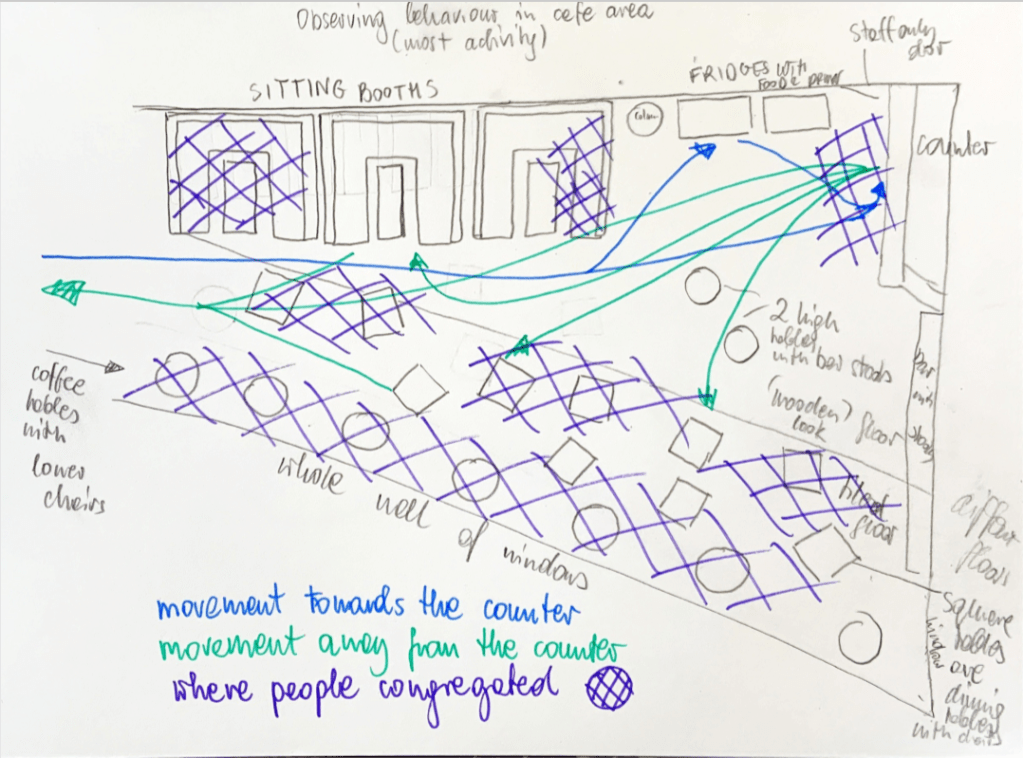 Observing behaviour in cefe area
(most activity)
Staff only
door
SITTING BOOTHS
FRIDGES with
FOOD &
Column
counter
2 high
tables
with bar stools
(wooden) floor
look
bar
with
stools
coffee
tables
with
lower
chairs
whole wall of windows
tiled
floor
different
floors
square
tables
are
dining
tables
with chairs
windows
movement towards the counter
movement away from the counter
where people congregated